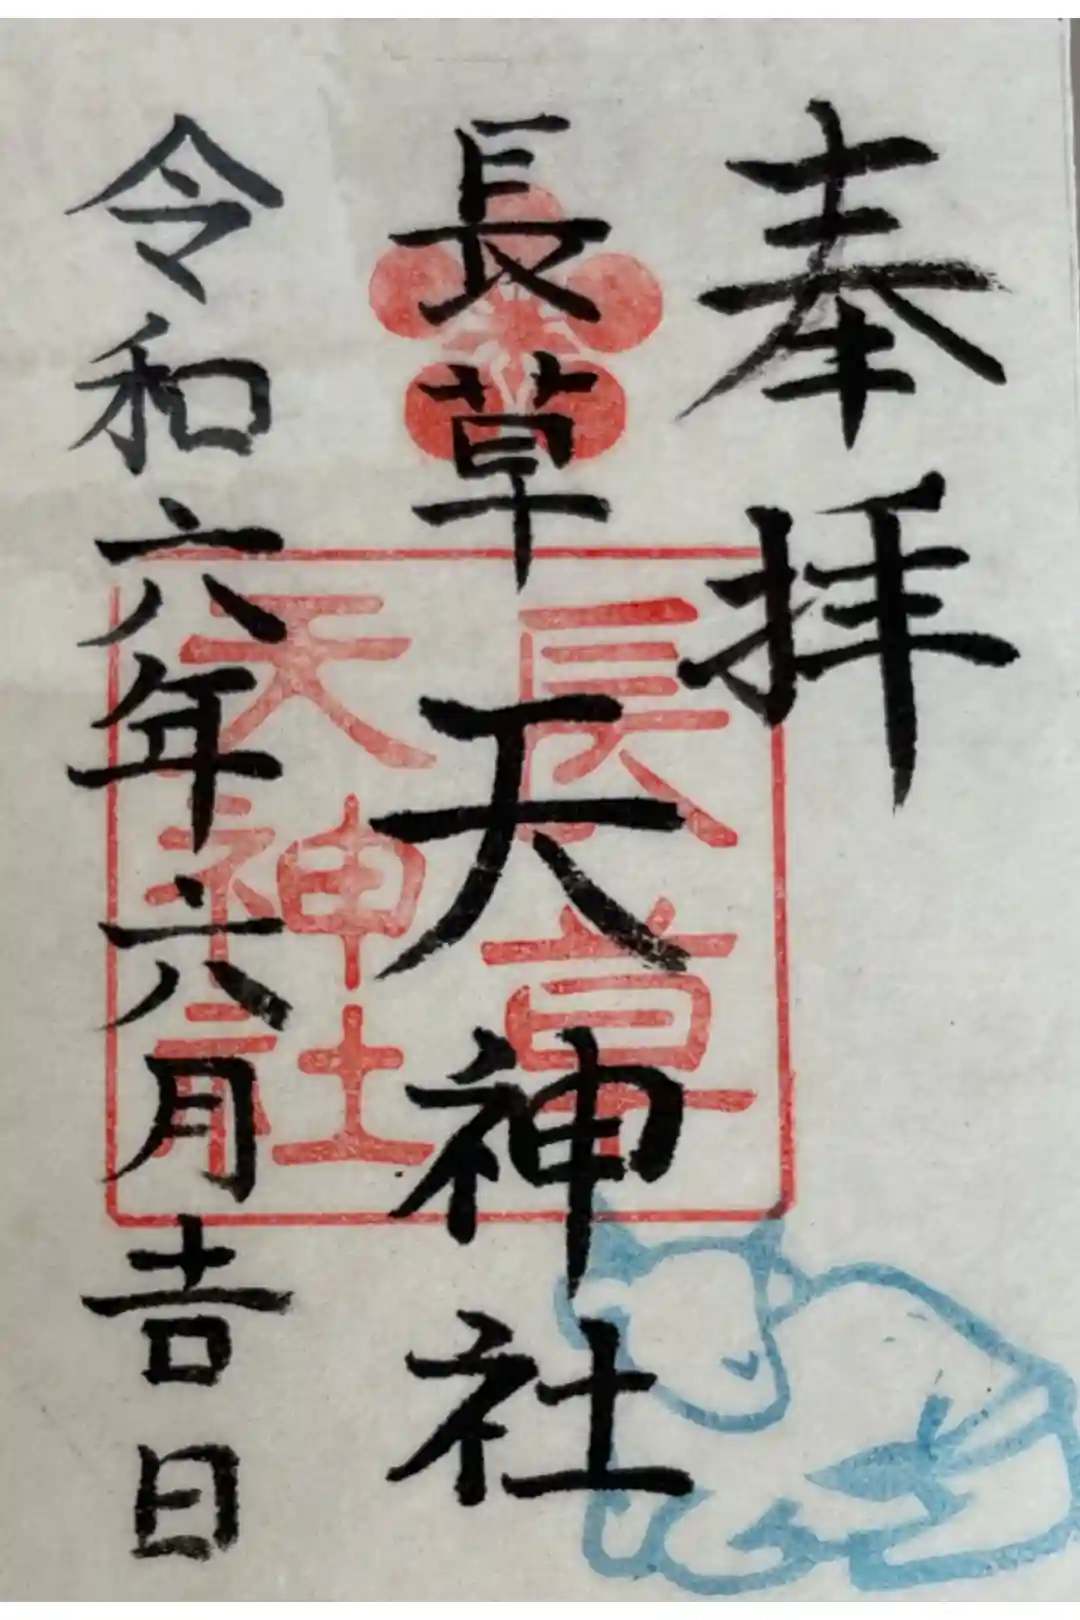 奉拝
長草天神社
長草
天神社
令和六年六月吉日